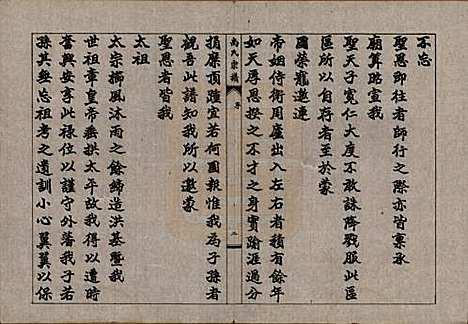 不忘
聖恩即往者師行之際亦皆稟承
廟算昭宣我
聖天子寬仁大度不敢誅降戮服此區
區所以自將者至於蒙
國榮寵遴連
帝姻侍衛周廬出入左右者積有餘年
如天厚恩揆之不才之身實踰涯過分
尚氏宗譜
序
三
捐糜頂踵宜若何圖報惟我為子孫者
觀吾此譜知我所以邀蒙
聖恩者皆我
太祖
太宗櫛風沐雨之餘締造洪基暨我
世祖章皇帝垂拱太平故我得以遭時
奮興安享此祿位以謹守外藩我子若
孫其無忘祖考之遺訓小心翼翼以保